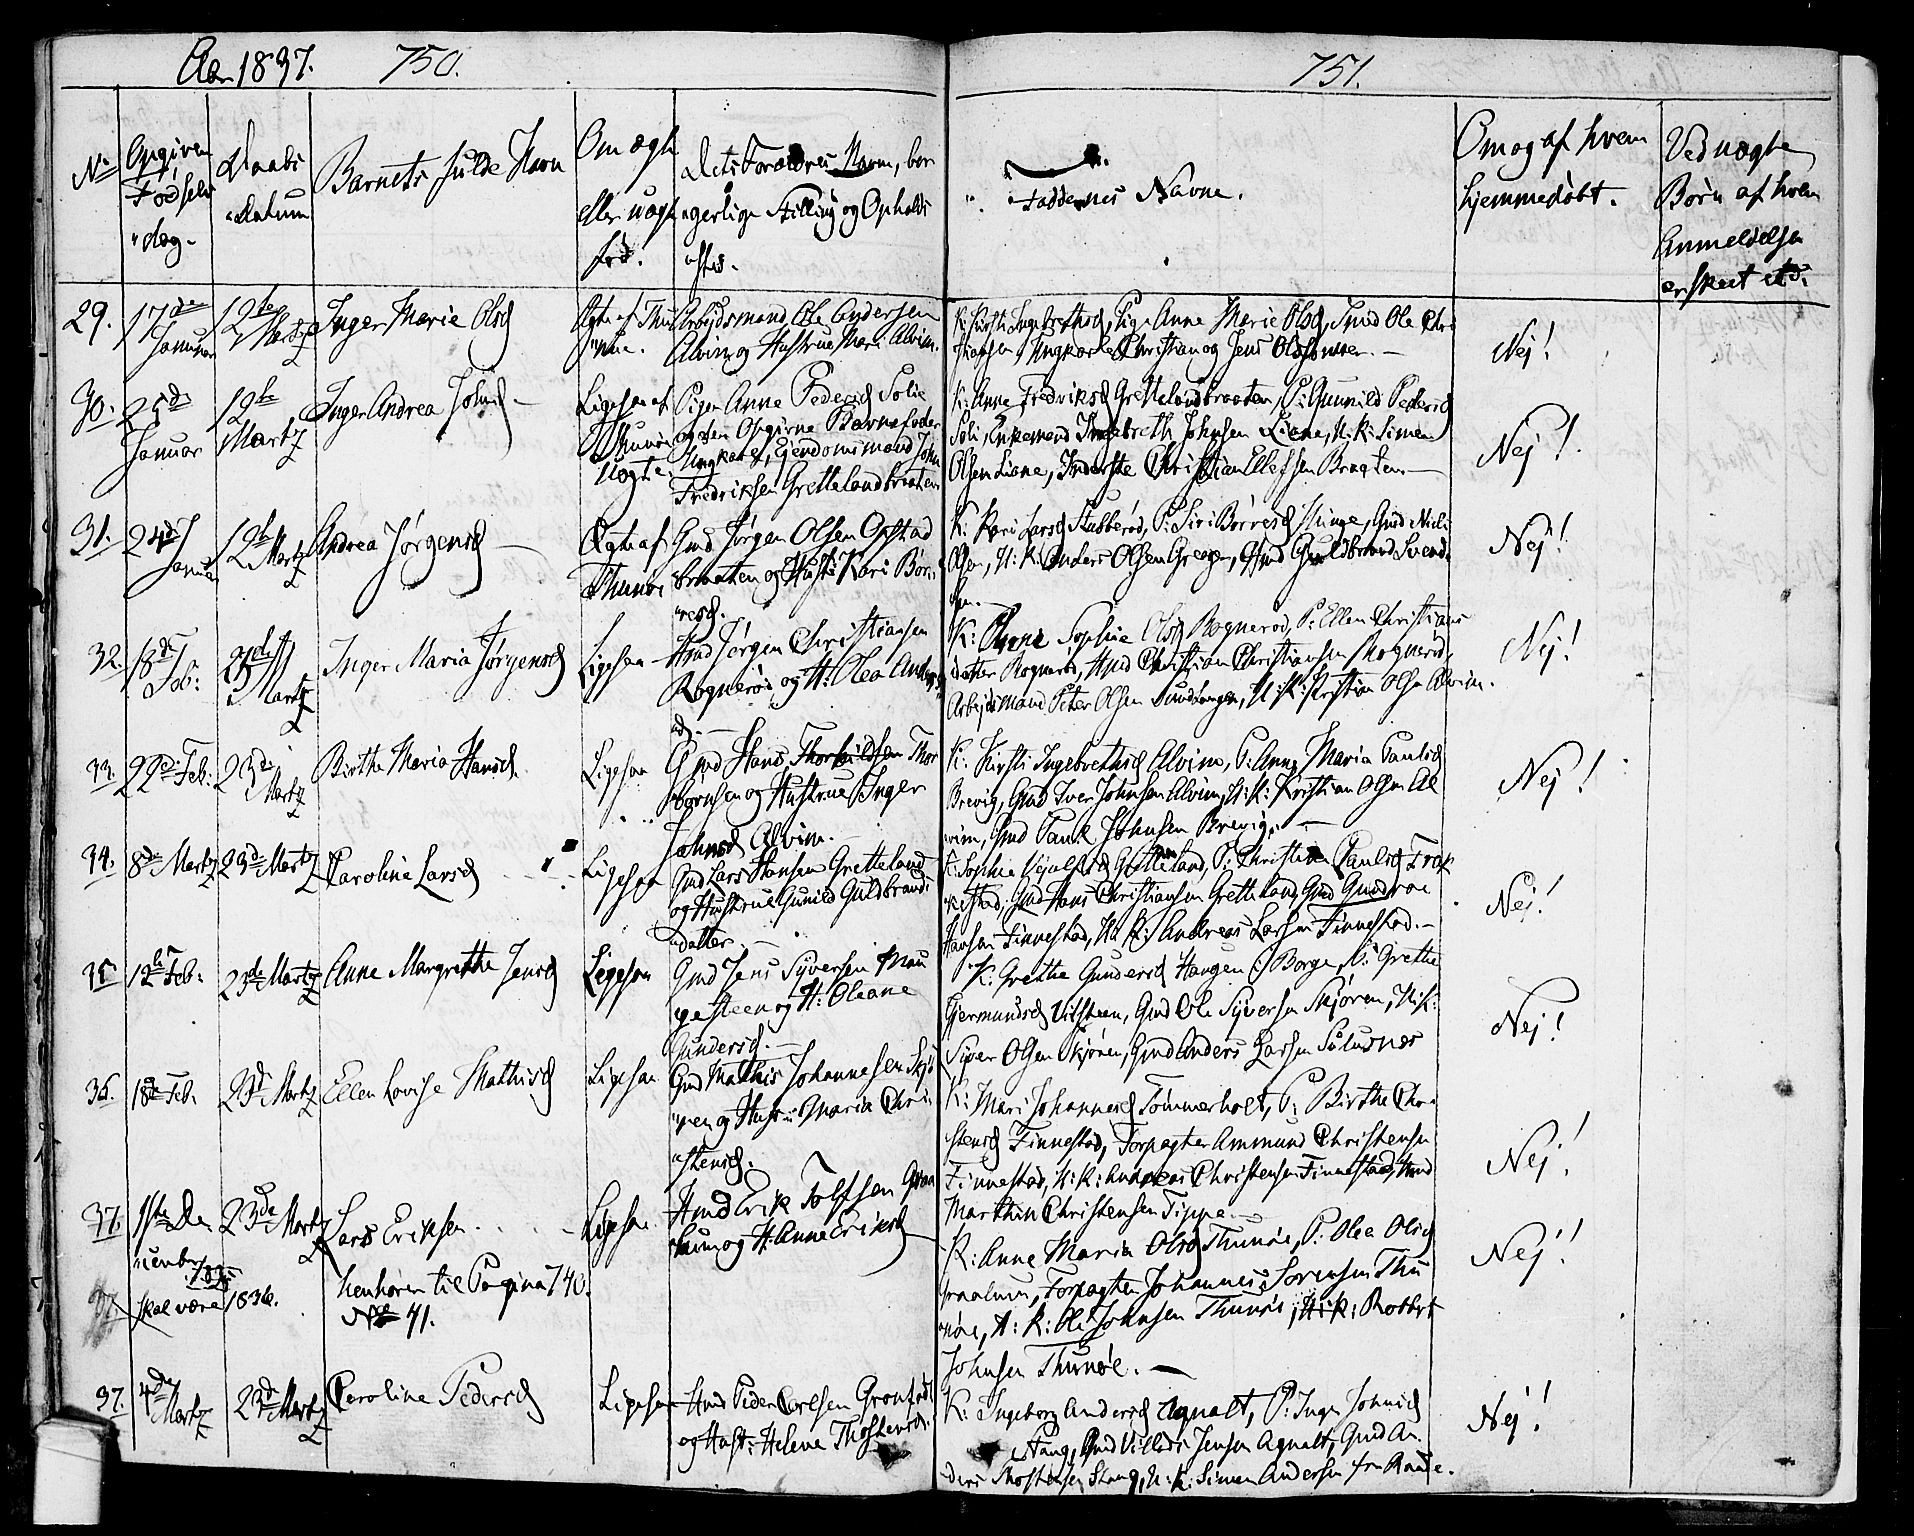 Aar 1837. 750.
751.
No
Opgiven Fødsels dag.
Daabs Datum
Barnets fulde Navn
Om ægte eller uægte fød.
Dets Forældres Navn, borgerlige Stilling og Opholds sted.
Faddernes Navne.
Om og af hvem hjemmedøbt.
Ved uægte Børn af hvem Anmeldelsen er skeet etc.
29. 17de Januar 12te Martz Inger Marie Olsd
Arbejdsmand Ole Andersen
Alvim og Hustrue Mari Alvim.
K: Kirsti Ingebrethsd, Pige Anne Marie Olsd, Gmd Ole Chri
stiansen, Ungkarle Christian og Jens Olsønner. —
Nej!
30. 25de Januar 12te Martz Inger Andrea Johnsd —
Ligesaa af
Uægte
Pigen Anne Pedersd Solie
og den Opgivne Barnefader
Ungkarl, Ejendomsmand John
Fredriksen Grettelandbraaten
K: Anne Fredriksd Grettelandbraaten, P: Gunnild Pedersd
Soli, Enkemand Ingebreth Johnsen Liane, U: K: Simen
Olsen Liane, Inderste Christian Ellefsen Braaten —
Nej!
31. 24de Januar 12te Martz Andrea Jørgensd —
Ægte af
Thunøe
Gmd Jørgen Olsen Opstad
braaten og Hust: Kari Bør
resd.
K: Kari Larsd Stubberød, P: Siri Børresd Thunøe, Gmd Niels
Olsen, U: K: Anders Olsen Greaker, Hmd Guldbrand Svend
sen. —
Nej!
32. 18de Feb: 23de Martz Inger Maria Jørgensd
Ligesaa
Hmd Jørgen Christiansen
Rognerød og H: Olea Anders
d. —
K: Sophie Olsd Rognerød, P: Ellen Christians
datter Rognerød, Hmd Christian Christiansen Rognerød,
Arbejdsmand Peter Olsen Sundløngen, U: K: Kristian Olsen Alvim.
Nej!
33. 22de Feb: 23de Martz Birthe Maria Hansd.
Ligesaa
Gmd Hans Thorkildsen Thor
børnsen og Hustrue Inger
Johnsd Alvim. —
K: Kirsti Ingebrethsd Alvim, P: Anne Maria Paulsd
Brevig, Gmd Iver Johnsen Alvim, U: K: Kristian Olsen Al
vim, Gmd Paul Johnsen Brevig. —
Nej!
34. 8de Martz 23de Martz Caroline Larsd
Ligesaa
Gmd Lars Hansen Gretteland
og Hustrue Gunild Guldbrands
datter. —
K: Sophie Gretteland, P: Christine Paulsd
Gmd Hans Christiansen Gretteland, Gmd Gundroe
Hansen Finnestad, U: K: Andreas Larsen Finnestad. —
Nej!
35. 12te Feb: 23de Martz Anne Margrethe Jensd
Ligesaa
Gmd Jens Syversen Hau
gesteen og H: Oleane
Gundersd. —
K: Grethe Gundersd Haugen i Borge, P: Grethe
Gjermundsd Visteen, Gmd Ole Syversen Skjøren, U: K:
Syver Olsen Skjøren, Gmd Anders Larsen
Nej!
36. 18de Feb. 23de Martz Ellen Lovise Mathisd
Ligesaa.
Gmd Mathis Johannesen Skjø
ren og Hustrue Maria Chri
stensd.
K: Mari Johannesd Tømmerholt, P: Birthe Chri
stensd Finnestad, Forpagter Ammund Christensen
Finnestad, U: K: Andreas Christensen Finnestad, Hmd
Marthin Christensen Tippe. —
Nej!
37. 1ste De 23de Martz Lars Eriksen
Ligesaa.
Hmd Erik Tolfsen
og H: Anne Eriksd —
skal være 1836.
henhører til Pagina 740.
No 41.
K: Anne Maria Olsd Thunøe, P: Olea Olsd
Forpagter Johannes Sørensen Thu
nøe, U: K: Ole Johnsen Thunøe, U: K: Robbert
Johnsen Thunøe. —
Nej!
37. 4de Martz 23de Martz Caroline Pedersd
Ligesaa
Hmd Peder Carlsen
og Hust: Helene Thostensd.
K: Ingeborg Andersd Agnalt, P: Inger Johnsd
Stang, Gmd Villads Jensen Agnalt, Gmd An
ders Thostensen Stang, U: K: Simen Andersen fra Raade.
Nej!